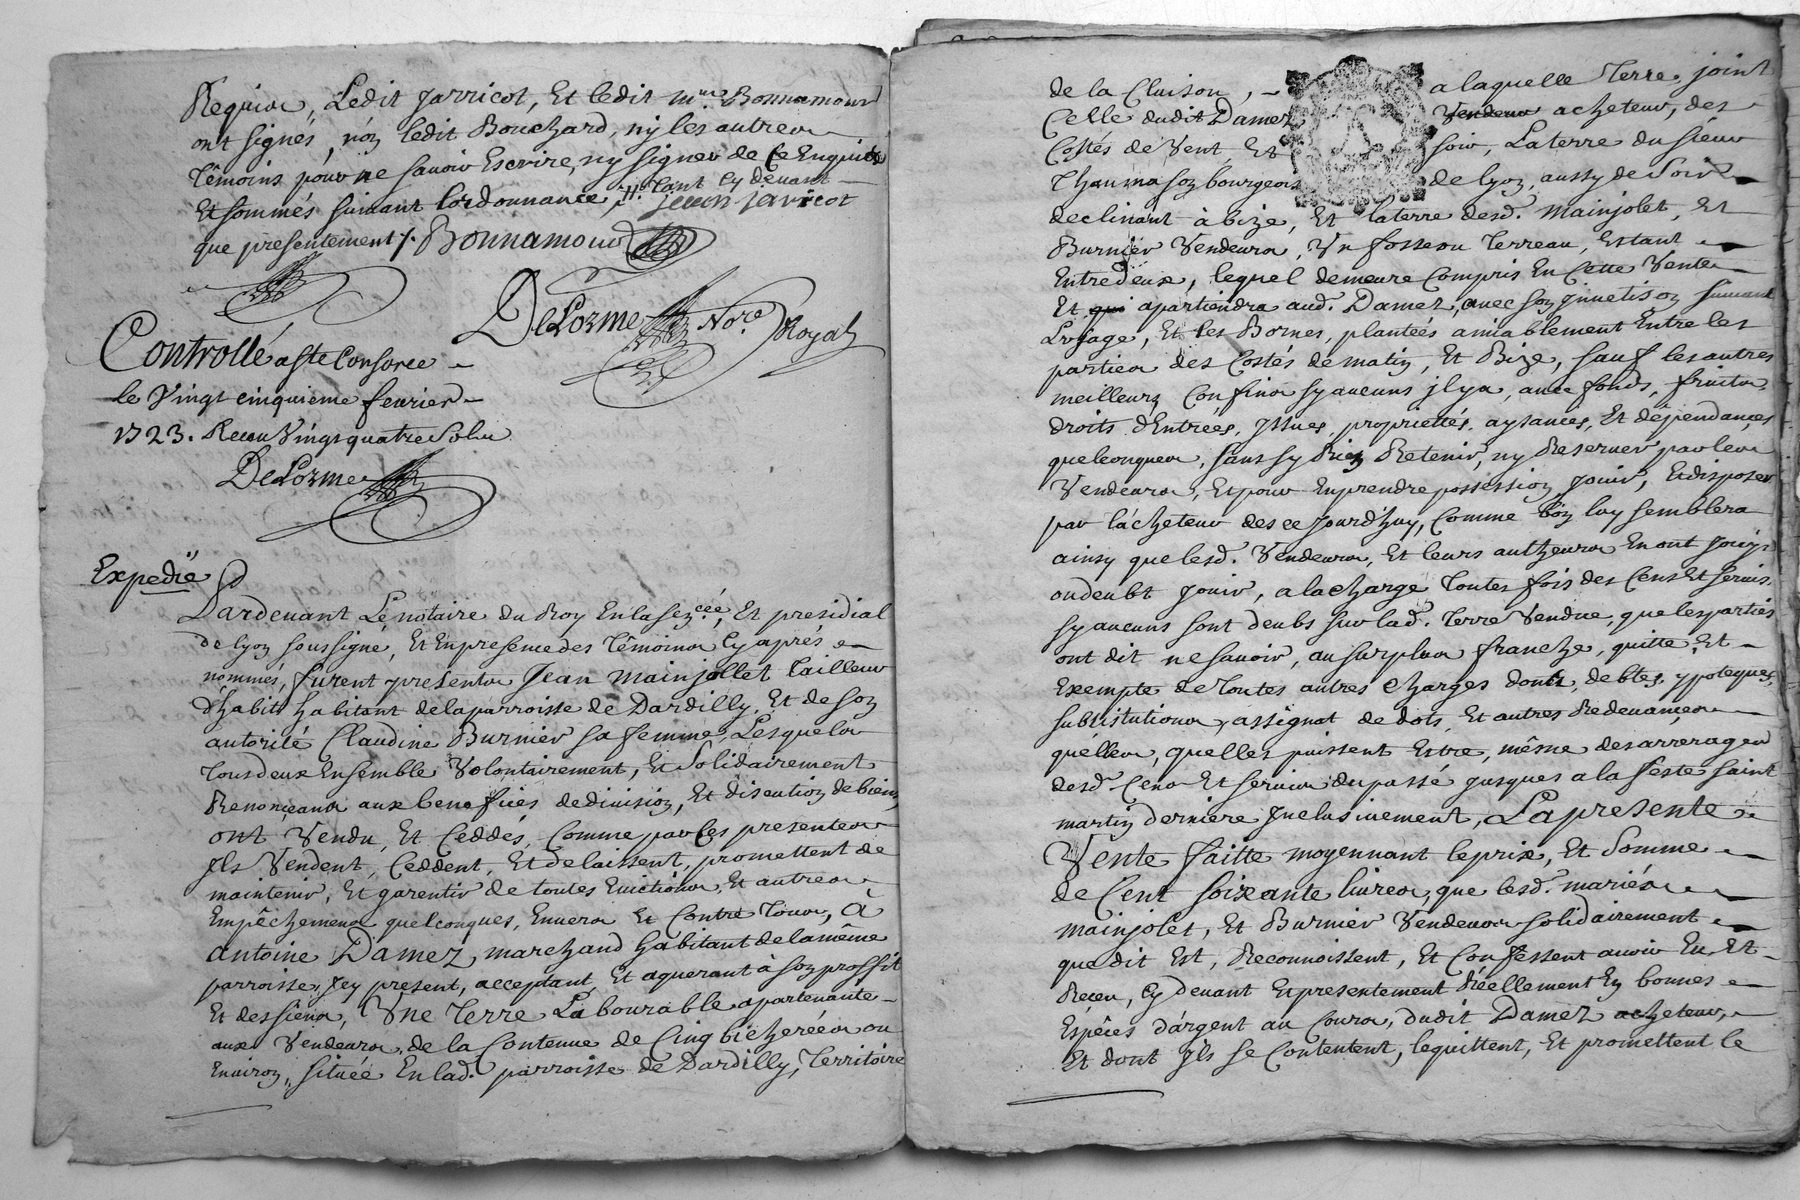 Requis, Ledit Jarricot, Et ledit mre. Bonnamour
ont signés, nôn ledit Bouchard, ny les autres
têmoins pour ne savoir Escrire, ny signer de Ce Enquis
Et sommés suivant lordonnance, tant Cy devant
que presentement /. Bonnamour jean jaricot
DeLorme Nore. Royal
Controllé a ste Consorce
le Vingt cinquieme fevrier
1723. Receu Vingt quatre sols
DeLorme
Expedié
Pardevant Le notaire du Roy En la senécée, Et presidial
de lyon soussigné, Et En presence des têmoins Cy aprés
nommés, furent presents Jean mainjollet tailleur
d'habits habitant de la parroisse de Dardilly, Et de son
autorité Claudine Burnier sa femme, Lesquels
tous deux Ensemble Volontairement, Et Solidairement
Renonçants aux benefices de division, Et discution de biens,
ont Vendu, Et Ceddés, Comme par Ces presentes
Ils Vendent, Ceddent, Et delaissent, promettent de
maintenir, Et garentir de toutes Evictions, Et autres
Empêchemens quelconques, Envers Et Contre tous, À
antoine Damez, marchand habitant de la même
parroisse, Icy present, acceptant, Et aquerant à son proffit
Et des siens, Une Terre Labourable apartenante
aux Vendeurs, de la Contenue de Cinq bicherées ou
Environ, située En lad. parroisse de Dardilly, Territoire
de la Cluison, a laquelle Terre, joint
Celle dudit Damez Vendeur acheteur, des
Costés de Vent, Et soir, La terre du sieur
Thaumason bourgeois de lyon, aussy de Soir
declinant à bize, Et la terre desd. mainjolet, Et
Burnier Vendeurs, Un fosse ou Terreau, Estant
Entre deux, lequel demeure Compris En Cette Vente
Et qui apartiendra aud. Damez, avec son jnnetison suivant
Lusage, Et les Bornes, plantées amiablement Entre les
parties des Costés de matin, Et Bize, sauf les autres
meilleurs Confins sy aucuns jl y a, avec fonds, fruits
droits d'Entrées, Issues, propriettés, aysances, Et dépendances
quelconques, sans sy Rien Retenir, ny Reserver par les
Vendeurs, Et pour En prendre possession jouir, Et disposer
par l'acheteur des ce jourd'huy, Comme bon luy semblera
ainsy que lesd. Vendeurs, Et leurs autheurs En ont jouys
ou deubt jouir, a la charge toutes fois des Cens Et servis
sy aucuns sont deubs sur lad. terre Vendue, que les parties
ont dit ne savoir, au surplus franche, quitte, Et
Exempte de toutes autres Charges dont, debtes, ypoteques,
substitutions, assignat de dots, Et autres Redevances
quélles, quelles puissent Estre, même des arrerages
desd. Cens Et servis du passé jusques a la feste saint
martin derniere Inclusivement, La presente
Vente faitte moyennant le prix, Et Somme
de Cent soixante livres, que lesd. mariés
mainjolet, Et Burnier Vendeurs solidairement
que dit Est, Reconnoissent, Et Confessent avoir Eu, Et
Receu, Cy devant Et presentement Réellement En bonnes
Espêces d'argent au Cours, dudit Damez acheteur,
Et dont Ils se Contentent, le quittent, Et promettent le